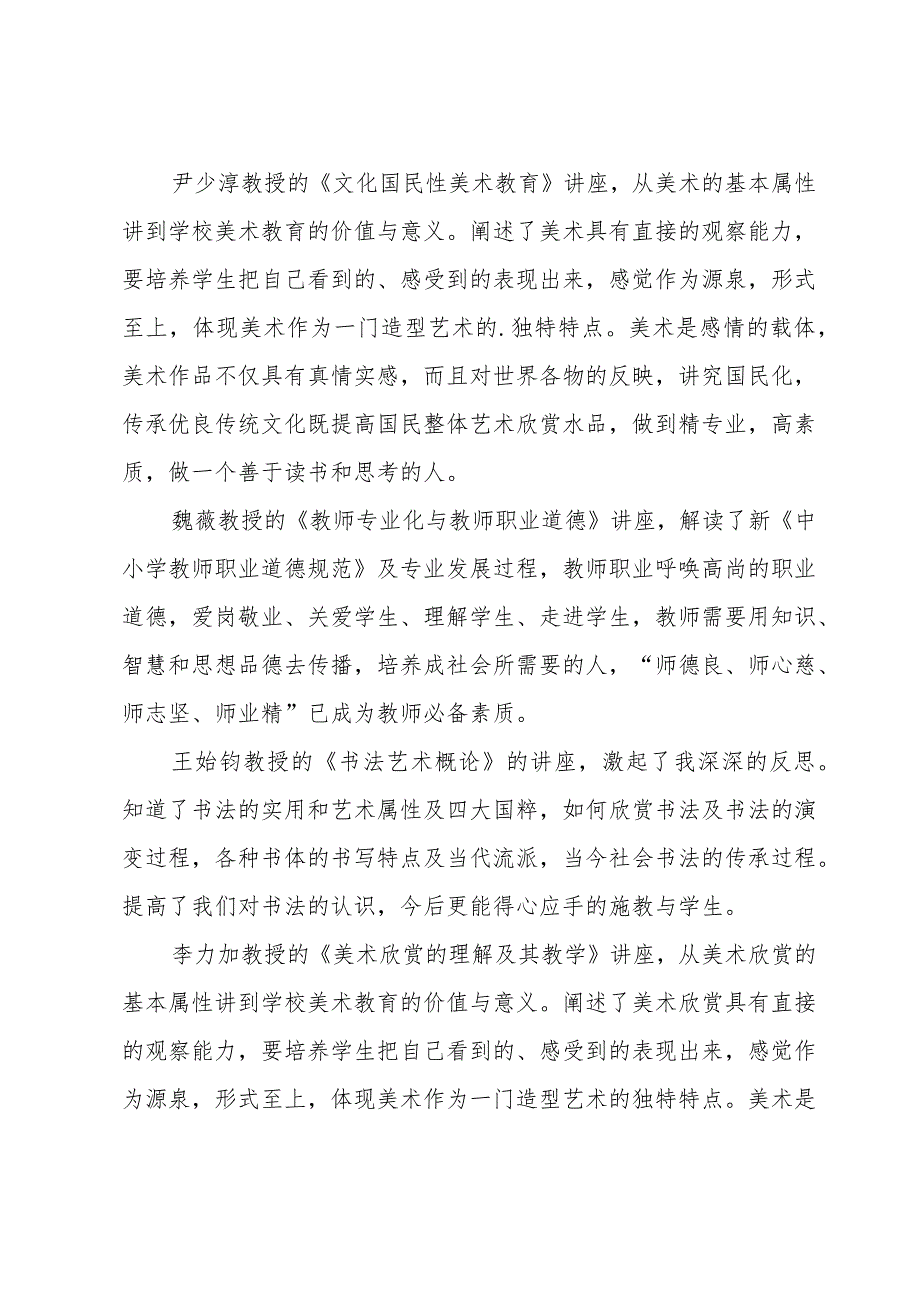 尹少淳教授的《文化国民性美术教育》讲座，从美术的基本属性
讲到学校美术教育的价值与意义。阐述了美术具有直接的观察能力，
要培养学生把自己看到的、感受到的表现出来，感觉作为源泉，形式
至上，体现美术作为一门造型艺术的.独特特点。美术是感情的载体，
美术作品不仅具有真情实感，而且对世界各物的反映，讲究国民化，
传承优良传统文化既提高国民整体艺术欣赏水品，做到精专业，高素
质，做一个善于读书和思考的人。
魏薇教授的《教师专业化与教师职业道德》讲座，解读了新《中
小学教师职业道德规范》及专业发展过程，教师职业呼唤高尚的职业
道德，爱岗敬业、关爱学生、理解学生、走进学生，教师需要用知识、
智慧和思想品德去传播，培养成社会所需要的人，“师德良、师心慈、
师志坚、师业精”已成为教师必备素质。
王始钧教授的《书法艺术概论》的讲座，激起了我深深的反思。
知道了书法的实用和艺术属性及四大国粹，如何欣赏书法及书法的演
变过程，各种书体的书写特点及当代流派，当今社会书法的传承过程。
提高了我们对书法的认识，今后更能得心应手的施教与学生。
李力加教授的《美术欣赏的理解及其教学》讲座，从美术欣赏的
基本属性讲到学校美术教育的价值与意义。阐述了美术欣赏具有直接
的观察能力，要培养学生把自己看到的、感受到的表现出来，感觉作
为源泉，形式至上，体现美术作为一门造型艺术的独特特点。美术是